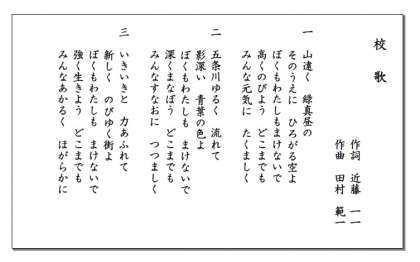 校　歌
作詞　近藤　一一
作曲　田村　範一
一　山遠く　緑真昼の
そのうえに　ひろがる空よ
ぼくもわたしもまけないで
高くのびよう　どこまでも
みんな元気に　たくましく
二　五条川ゆるく　流れて
影深い　青葉の色よ
ぼくもわたしも　まけないで
深くまなぼう　どこまでも
みんなすなおに　つつましく
三　いきいきと　力あふれて
新しく　のびゆく街よ
ぼくもわたしも　まけないで
強く生きよう　どこまでも
みんなあかるく　ほがらかに